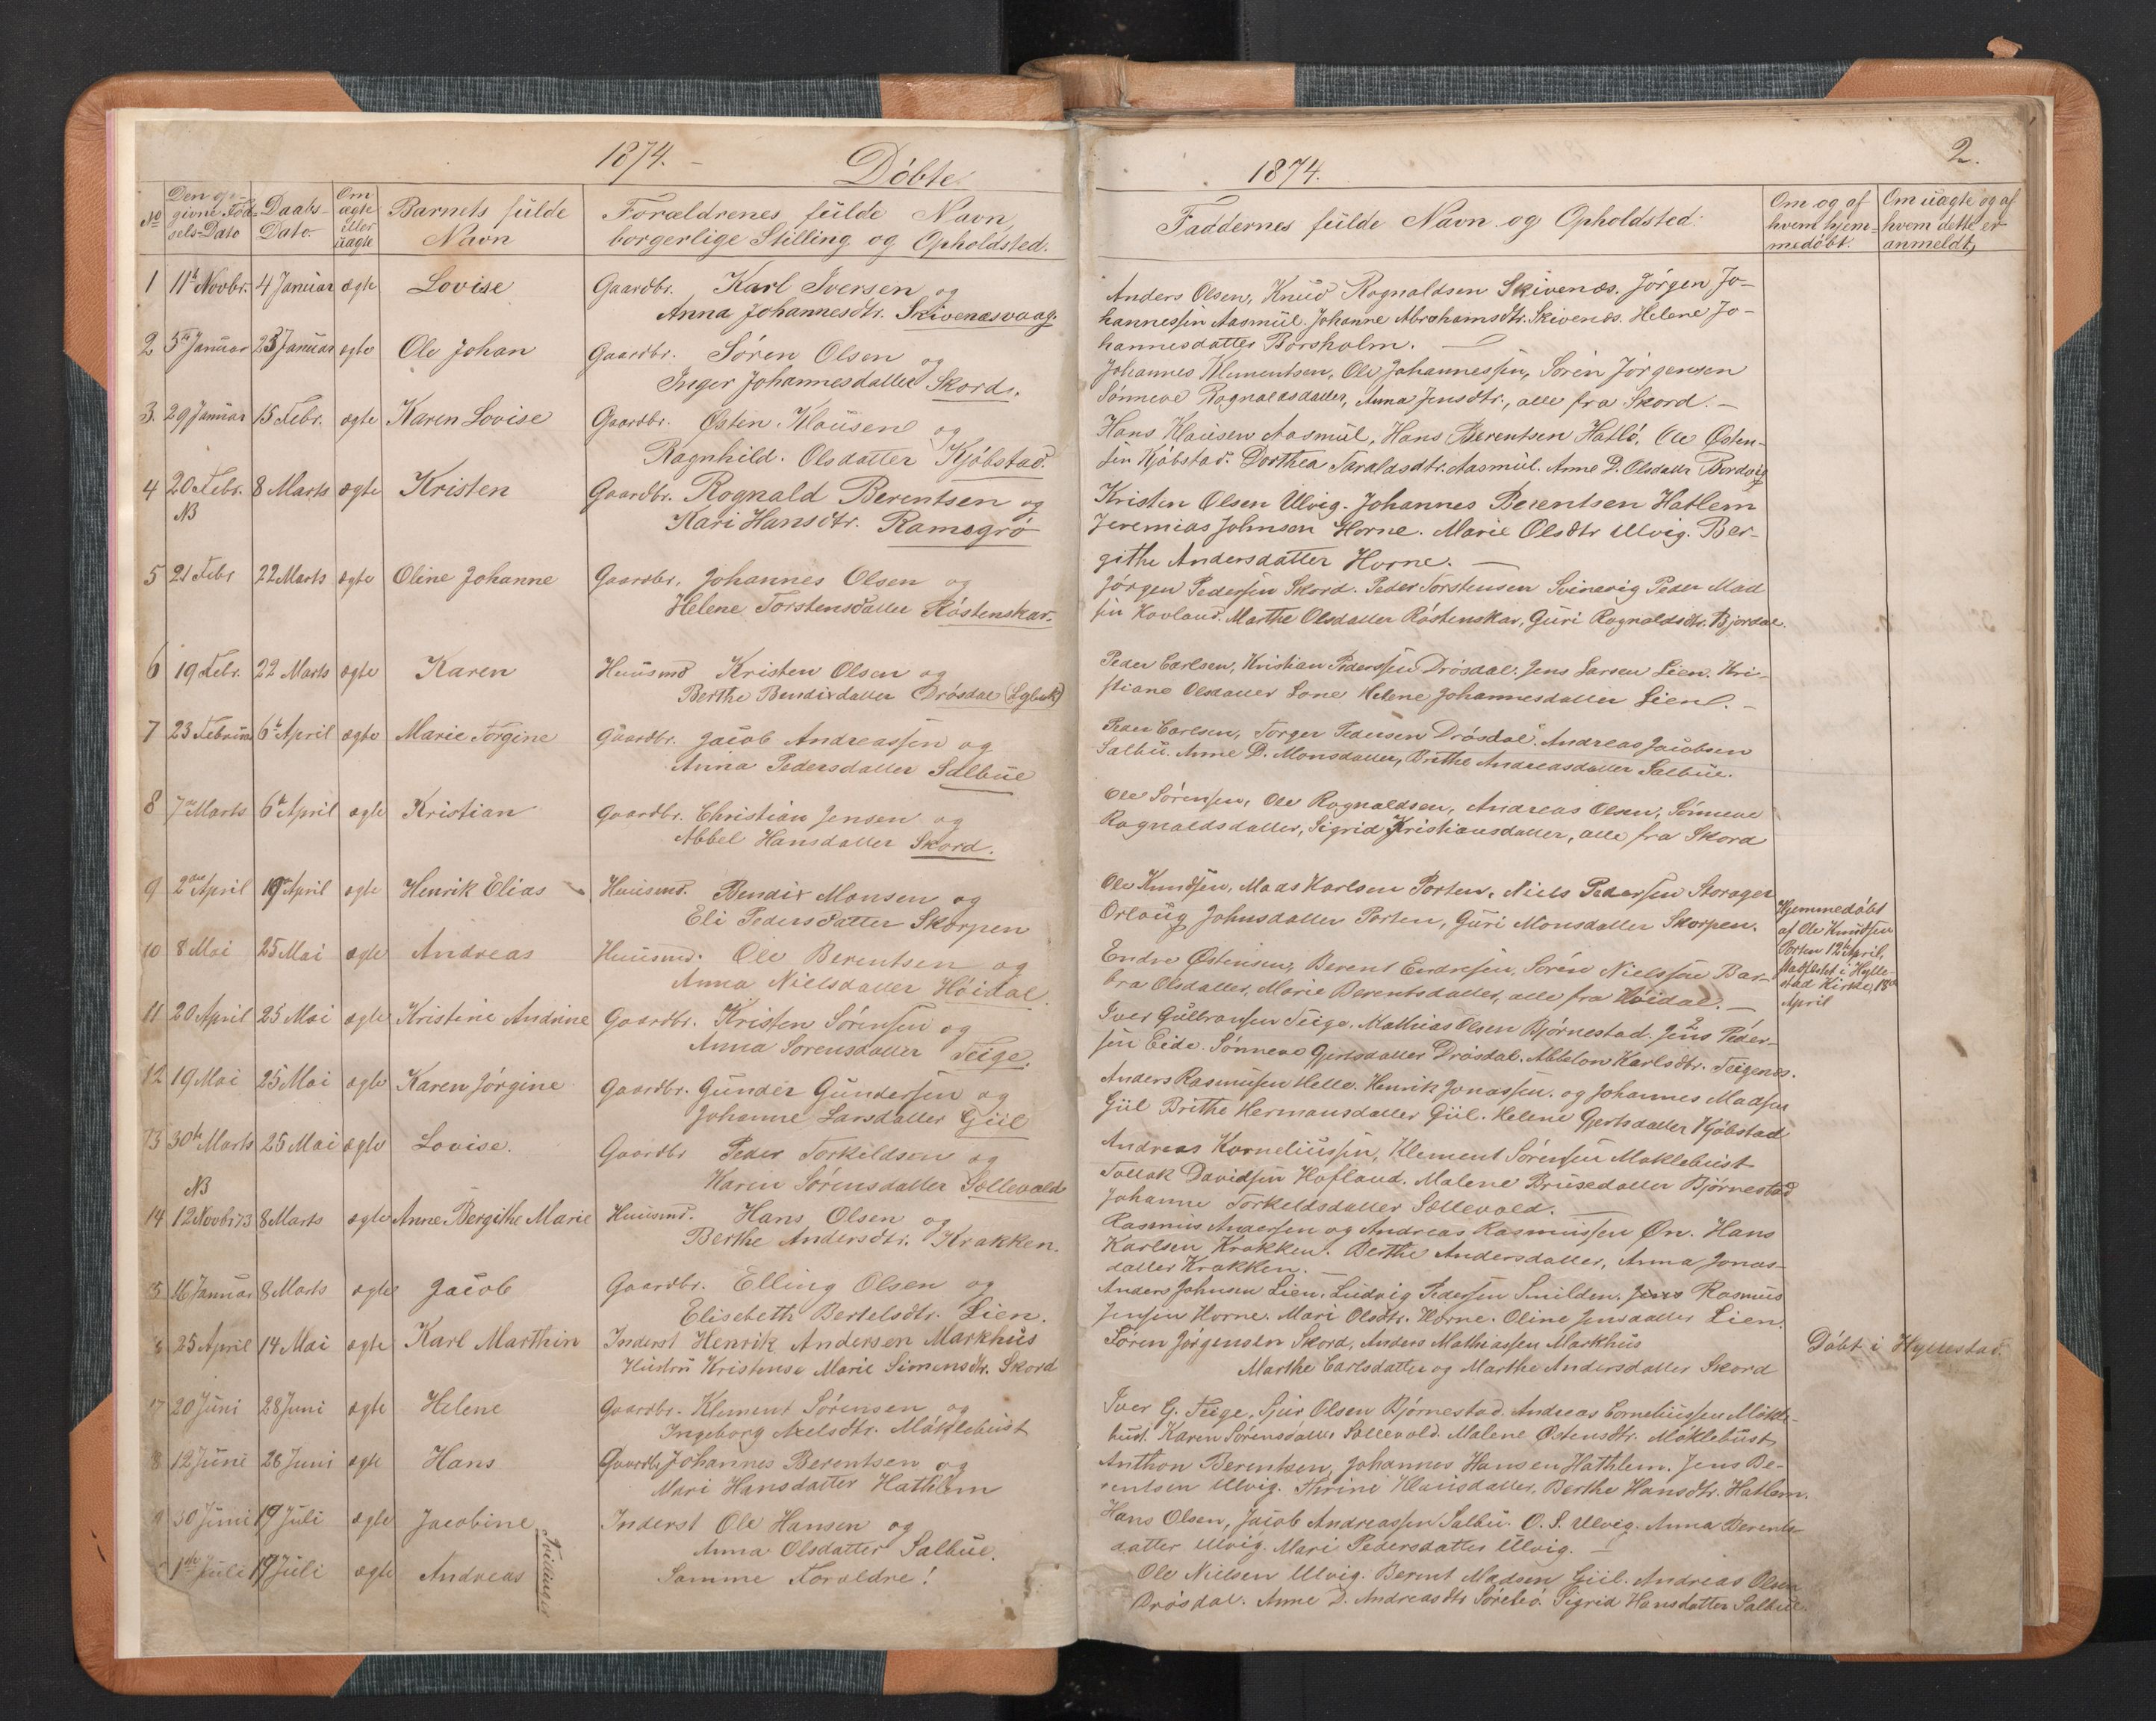 1874. –
Döbte.
No
Den
givne Fød-
sels-Dato
Daabs-
Dato.
Om
ægte
eller
uægte
Barnets fulde
Navn
Forældrenes fulde Navn,
borgerlige Stilling og Opholdsted.
1 11te Novbr. 4 Januar ægte Lovise Gaardbr. Karl Iversen og
Anna Johannesdtr. Skivenæsvaag.
2 5te Januar 25 Januar ægte Ole Johan Gaardbr. Søren Olsen og
Inger Johannesdatter Skord.
3. 29 Januar 15 Febr. ægte Karen Lovise Gaardbr. Østen Klausen og
Ragnhild. Olsdatter Kjöbstad.
4 20 Febr. 8 Marts ægte Kristen Gaardbr. Rognald Berentsen og
NB Kari Hansdtr. Ramsgrø
5 21 Febr 22 Marts ægte Oline Johanne Gaardbr. Johannes Olsen og
Helene Torstensdatter Röstenskar.
6 19 Febr. 22 Marts ægte Karen Huusmd Kristen Olsen og
Berthe Bendixdatter Drösdal (Lybæk)
7 23 Februar 6te April ægte Marie Torgine Gaardbr. Jacob Andreassen og
Anna Pedersdatter Salbue
8 7de Marts 6te April ægte Kristian Gaardbr. Christian Jensen og
Abbel Hansdatter Skord.
9 2den April 19de April ægte Henrik Elias Huusmd. Bendix Monsen og
Eli Pedersdatter Skorpen
10 8 Mai 25 Mai ægte Andreas Huusmd. Ole Berentsen og
Anna Nielsdatter Höidal.
11 20 April 25 Mai ægte Kristine Andrine Gaardbr. Kristen Sörensen og
Anna Sørensdatter Teige.
12 19 Mai 25 Mai ægte Karen Jörgine Gaardbr. Gunder Gundersen og
Johanne Larsdatter Giil
13 30te Marts 25 Mai ægte Lovise. Gaardbr Peder Torkildsen og
Karen Sörensdatter Sollevold
NB
14 12 Novbr 73 8 Marts ægte Anne Bergithe Marie Huusmd. Hans Olsen og
Berthe Andersdtr. Krakken.
15 16 Januar 8 Marts ægte Jacob Gaardbr. Elling Olsen og
Elisebeth Bertelsdtr. Lien.
6 25 April 14 Mai ægte Karl Marthin Inderst Henrik Andersen Markhus
Hustru Kristense Marie Simensdtr. Skord
17 20 Juni 28 Juni ægte Helene Gaardbr. Klement Sörensen og
Ingeborg Axelsdtr. Möklebust
8 12 Juni 28 Juni ægte Hans Gaardb. Johannes Berentsen og
Mari Hansdatter Hathlem
9 30 Juni 19 Juli ægte Jacobine Inderst Ole Hansen og
Anna Olsdatter Salbue.
1ste Juli 19 Juli ægte Andreas Samme Foreldre!
Tvillinger
2.
1874.
Faddernes fulde Navn og Opholdsted:
Om og af
hvem hjem-
medöbt.
Om uagte og af
hvem dette er
anmeldt,
Anders Olsen, Knud Rognaldsen Skivenæs. Jörgen Jo-
hannessen Aasmul. Johanne Abrahamsdtr. Skivenæs. Helene Jo-
hannesdatter Borsholm. –
Johannes Klementsen, Ole Johannessen, Sören Jörgensen
Sönneve Rognaldsdatter, Anna Jensdtr., alle fra Skord. –
Hans Klausen Aasmul, Hans Berentsen Hatlö, Ole Østen-
sen Kjöbstad. Dorthea Taraldsdtr. Aasmul. Anne D. Olsdatter Bordvig
Kristen Olsen Ulvig. Johannes Berentsen Hatlem
Jeremias Johnsen Horne. Marie Olsdtr Ulvig. Ber-
githe Andersdatter Horne. –
Jörgen Pedersen Skord. Peder Torstensen Svinevig Peder Mad
sen Hovland. Marthe Olsdatter Röstenskar, Guri Rognaldsdtr. Bjordal.
Peder Carlsen, Kristian Pederssen Drösdal. Jens Larsen Lien. Kri-
stiane Olsdatter Helene Johannesdatter Lien. –
Peder Carlsen, Torger Pedersen Drösdal. Andreas Jacobsen
Salbu. Anne D. Monsdatter, Brithe Andreasdatter Salbue.
Ole Sörensen, Ole Rognaldsen, Andreas Olsen, Sönneve
Rognaldsdatter, Sigrid Kristiansdatter, alle fra Skord
Ole Knudsen, Mads Karlsen Porten, Niels Pedersen Storager
Orlaug Johnsdatter Porten, Guri Monsdatter Skorpen.
Hjemmedöbt
af Ole Knudsen
Porten 12te April,
Stadfestet i Hylle-
stad Kirke, 18de
April
Endre Østensen, Berent Endresen, Sören Nielssen Bar-
bra Olsdatter, Marie Berentsdatter, alle fra Höidal. –
Iver Gulbransen Teige. Mathias Olsen Björnestad. Jens Peder-
sen Eide. Sönneve Gjertsdatter Drösdal. Abbelon Karlsdtr. Teigenes.
Anders Rasmusen Helle. Henrik Jonassen. og Johannes Madsen
Giil Brithe Hermansdatter Giil. Helene Gjertsdatter Kjöbstad
Andreas Korneliussen, Klement Sörensen Moklebust
Tollak Davidsen Hofland. Malene Brusedatter Björnestad
Johanne Torkeldsdatter Sollevold. –
Rasmus Andersen og Andreas Rasmussen Øn. Hans
Karlsen Krakken. Berthe Andersdatter, Anna Jonas-
datter Krakken. –
Anders Johnsen Lien. Ludvig Pedersen Smilden. Jens Rasmus
Jensen Horne. Mari Olsdtr. Horne. Oline Jensdatter Lien.
Sören Jörgensen Skord, Anders Mathiassen Markhus
Marthe Carlsdatter og Marthe Andersdatter Skord
Döbt i Hyllestad.
Iver G. Teige, Sjur Olsen Björnestad. Andreas Corneliussen Mökle-
bust. Karen Sörensdatter Sollevold. Malene Østensdtr. Möklebust
Anthon Berentsen, Johannes Hansen Hathlem. Jens Be-
rentsen Ulvig. Thrine Klausdatter, Berthe Hansdtr. Hatlem.
Hans Olsen, Jacob Andreassen Salbu. O. S. Ulvig. Anna Berents-
datter Ulvig. Mari Pedersdatter Ulvig. –
Ole Nielsen Ulvig. Berent Madsen Giil. Andreas Olsen
Drösdal. Anne D. Andreasdtr Sörebö. Sigrid Hansdatter Salbue.